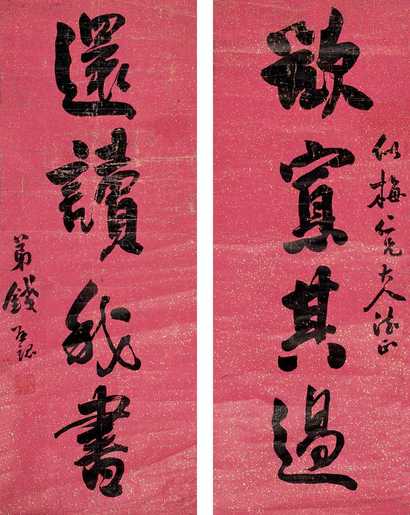 欲寡其過
似梅公兄大人法正
還讀我書
弟錢